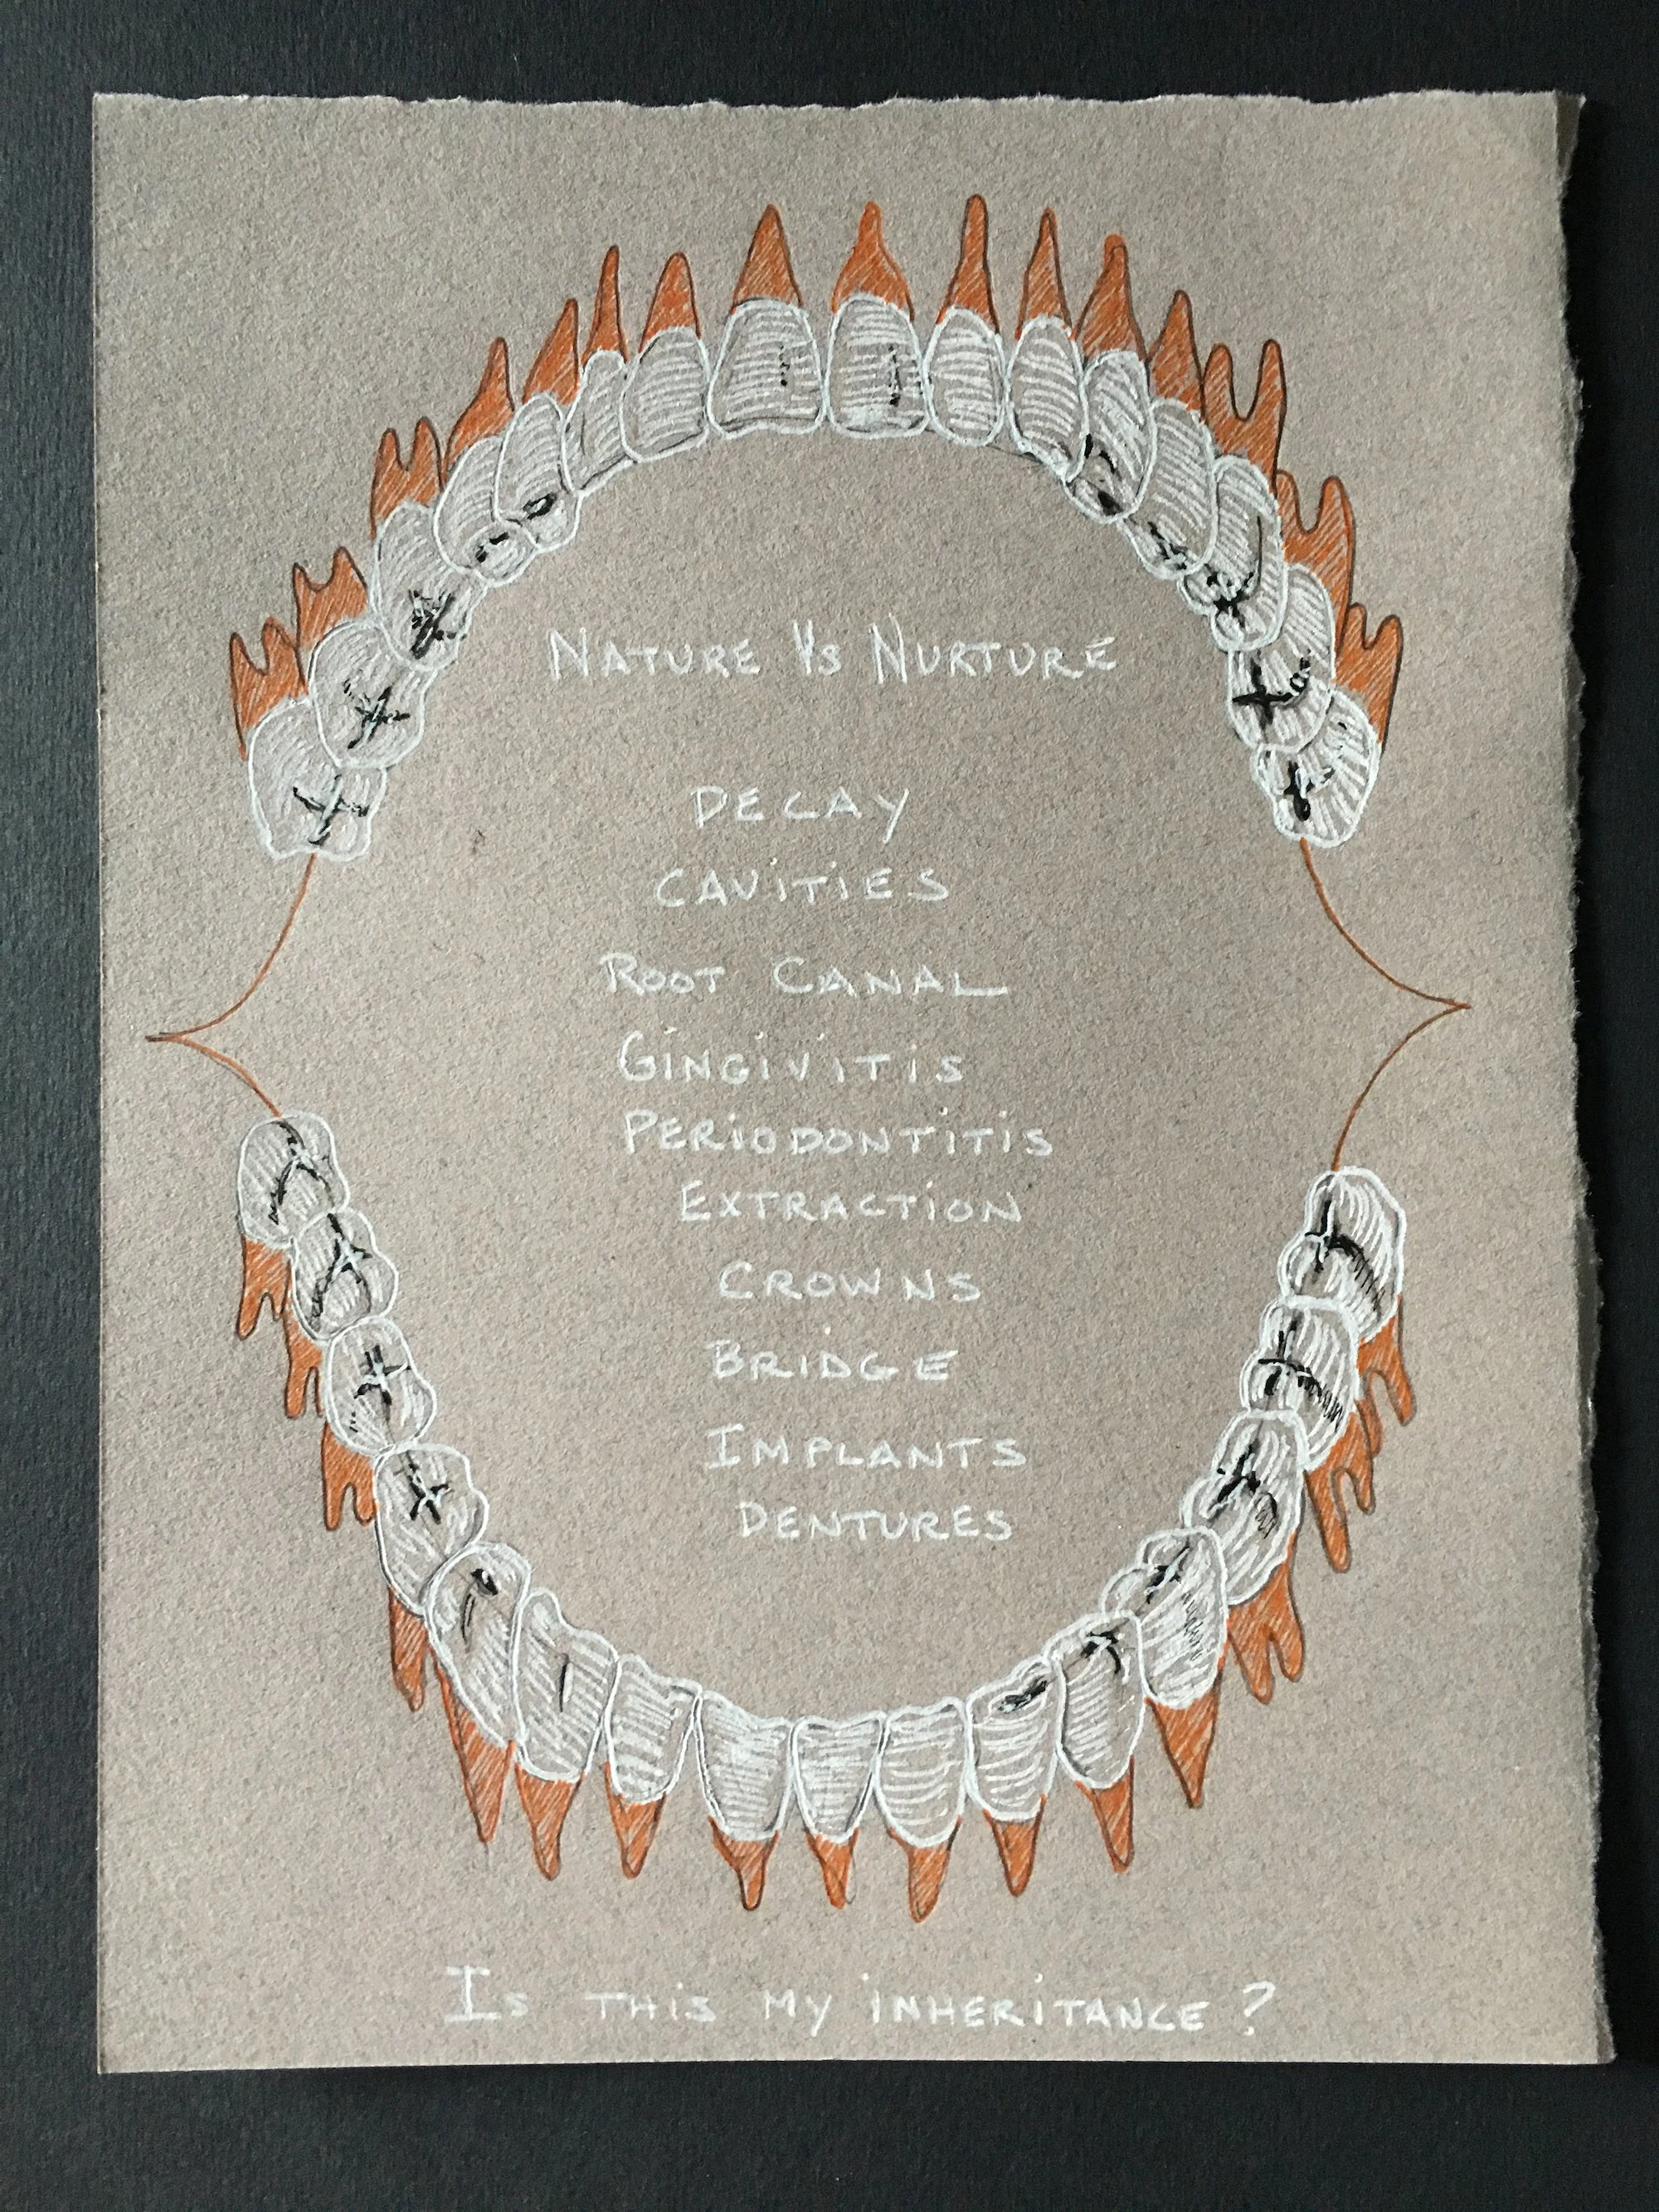 NATURE Vs NURTURE
DECAY
CAVITIES
ROOT CANAL
GINGIVITIS
PERIODONTITIS
EXTRACTION
CROWNS
BRIDGE
IMPLANTS
DENTURES
IS THIS MY INHERITANCE?